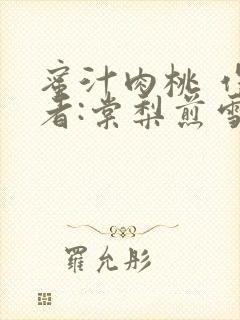 蜜汁肉桃 作
者:棠梨煎雪
羅允彤